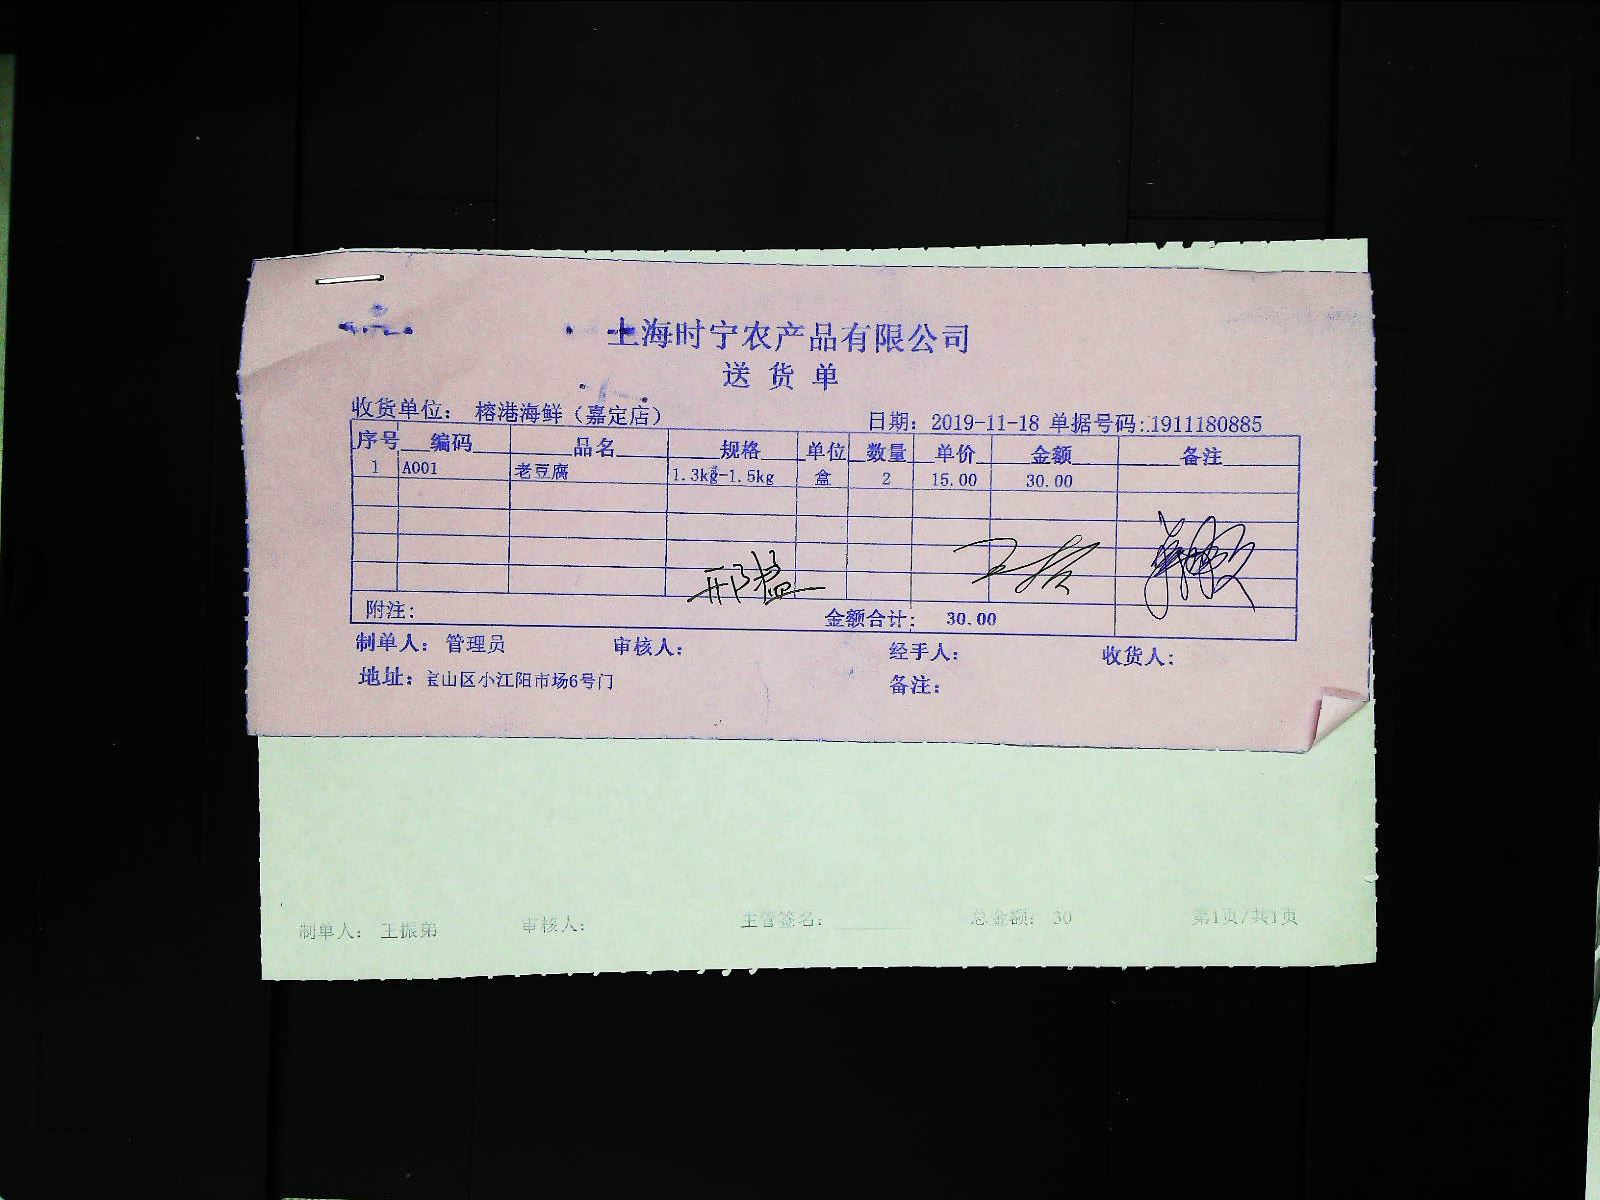 上海时宁农产品有限公司
送货单
收货单位： 榕港海鲜（嘉定店） 日期：2019-11-18 单据号码:1911180885
序号 编码 品名 规格 单位 数量 单价 金额 备注
1 A001 老豆腐 1.3kg-1.5kg 盒 2 15.00 30.00
附注： 金额合计： 30.00
制单人：管理员 审核人： 经手人： 收货人：
地址：宝山区小江阳市场6号门 备注：
制单人： 王振弟 审核人： 主管签名： 总金额： 30 第1页/共1页